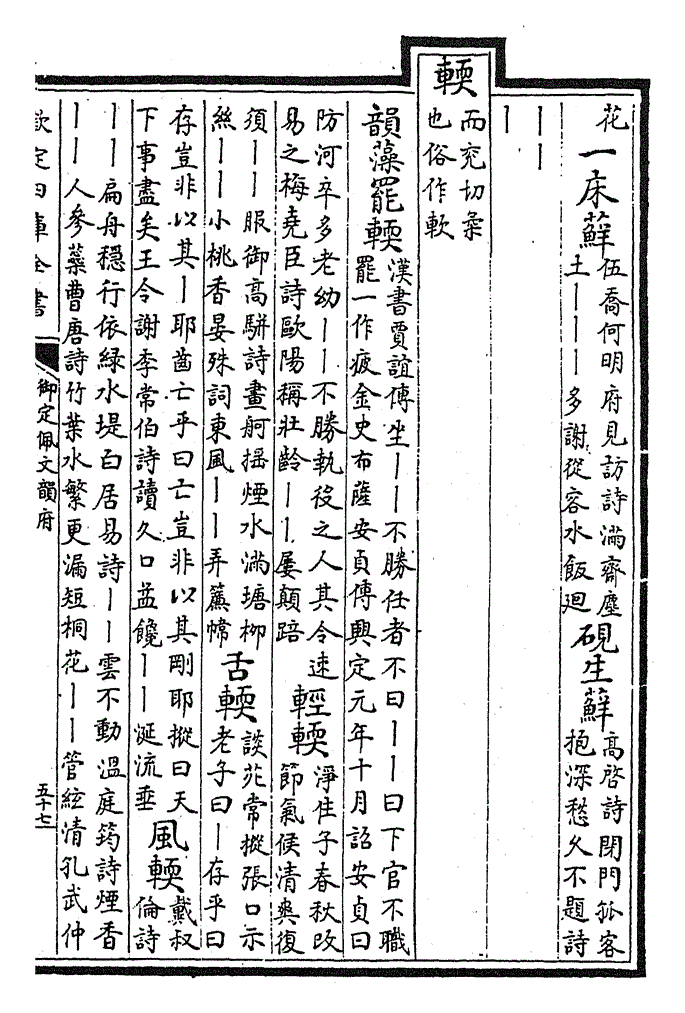 花一床蘚伍喬何明府見訪詩滿齋塵
土丨丨丨多謝從容水飯廻
硯生蘚高啓詩閉門孤客
抱深愁久不題詩
丨丨
丨
輭
而兖切柔
也俗作軟
韻藻罷輭漢書賈誼傳坐丨丨不勝任者不曰丨丨曰下官不職
罷一作疲金史布薩安貞傳興定元年十月詔安貞曰
防河卒多老幼丨丨不勝執役之人其令速
易之梅堯臣詩歐陽稱壯齡丨丨屢顛踣
輕輭淨住子春秋改
節氣候清爽復
須丨丨服御高駢詩畫舸揺煙水滿塘柳
絲丨丨小桃香晏殊詞東風丨丨弄簾幃
舌輭談苑常摐張口示
老子曰丨存乎曰
存豈非以其丨耶齒亡乎曰亡豈非以其剛耶摐曰天
下事盡矣王令謝李常伯詩讀久口益饞丨丨涎流垂
風輭戴叔
倫詩
丨丨扁舟穏行依緑水堤白居易詩丨丨雲不動溫庭筠詩煙香
丨丨人參蘂曹唐詩竹葉水繁更漏短桐花丨丨管絃清孔武仲
欽定四庫全書
御定佩文韻府
五十七